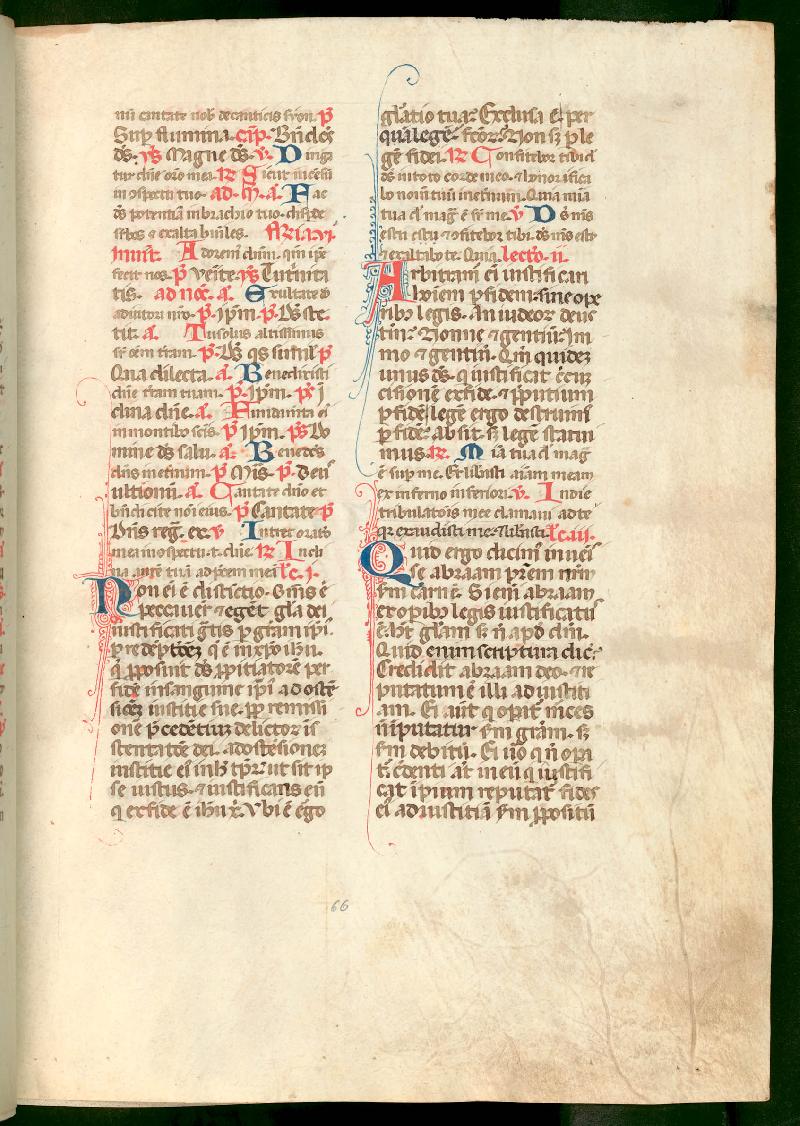 nū cantate nob̄ decanticis syon. p̄
Sup flumina. cap̄. Bn̄dc̄s
ds̄. ꝟs Magne ds̄. v. Diriga
tur dn̄e or̄o mea. R Sicut incēsū
in ɔspectu tuo. ad. M. a. Fac
ds̄ potentiā inbrachio tuo. disp̄de
sup̄bos ⁊ exalta humiles. Feria vi.
Inuit. Adorem᷒ dn̄m. qm̄ ip̄e
fecit nos. p̄ Venite. ꝟs Trinita
tis. ad noc̄. a. Exultate dō
adiutori nr̄o. p̄. ip̄m. p̄. Ds̄ ste
tit. a. Tu solus altissimus
sr̄ om̄ terram. p̄. Ds̄ qs̄ similʼ p̄
Qua dilecta. a. Benedixisti
dn̄e terram tuam. p̄. ip̄m. p̄s I
clina dn̄e. a. Fundamta ei᷒
in montibo sc̄is. p̄ ip̄m. p̄s Do
mine ds̄ salu. a. Bened̄c᷒
dn̄s in eternum. p̄ Mīs. p̄. deus
ultionū. a. Cantate dn̄o et
bn̄dicite noī eius. p̄ Cantate p̄
Dn̄s reḡ. ex. v Intret orat̄o
mea in ɔspectu. t. dn̄e. R Incli
na aurē tuā ad p̄cem meā lc̄. i.
Non ei ē distinctio. Om̄s ē
peccauer̄t ⁊ egēt gl̄a dei
iustificati gr̄tis p grām ip̄i᷒.
p redēptōeꝫ q̄ ē inxp̄o ih̄u.
q̄ p̄posuit ds̄ p̄pitiatorē per
fidē insanguine ip̄i᷒ ad ostē
sioeꝫ iustitie sue. pp̄ remissi
onē p̄cedētiuꝫ delictoꝝ ī s
stentatōe dei. ad ostēsioneꝫ
iustitie ei᷒ inh̄ tp̄r̄. ut sit ip
se iustus. ⁊ iustificans eū
q̄ exfide ē ih̄u x̄. Vbi ē ērgo
gl̄atio tua? Exclusa ē. per
qualegē? fcōꝝ? Non sꝫ p le
gē fidei. R Confitebor tibi d̄
ds̄ in toto corde meo. ⁊ honorifica
bo nom̄ tuū ineternum. Quia mīa
tua dn̄e maḡ ē sr̄ me. v Ds̄ ms̄
es tu ⁊ ɔfitebor tibi. ds̄ ms̄ es tu
⁊ exaltabo te. Quia. lectō. ii.
Arbitram᷒ ei iustifican
hoiem p fidem. sine ope
ribo legis. An iudeoꝝ deus
tm̄? Nonne ⁊ gentiū? Im
mo ⁊ gentiū. Qm̄ quideꝫ
unus ds̄. q̄ iustificat circū
cisionē exfide. ⁊ p̄putium
p fidē. legē ergo destruim᷒
p fidē? absit. sꝫ legē statui
mus. R. Mīa tua dn̄e maḡ
ē sup me. Et libasti aīam meam
ex inferno inferiori. v. In die
tribulatōis mee clamaui ad te
q̄ exaudisti me. ⁊ libasti. lc̄. iii.
Quid ergo dicem᷒ inueis
se abraam pr̄em nr̄m
sm̄ carnē. Si em̄ abraam
ex opibo legis iustificatus
ē. h̄t gl̄am sꝫ n̄ apd̄ dm̄.
Quid enim scriptura dic̄?
Credidit abraam deo. ⁊ re
putatum ē illi ad iustiti
am. Ei aut̄ q̄ opat̄ merces
n̄ īputatur sm̄ grām. sꝫ
sm̄ debitū. Ei ūo q̄ n̄ opa
t. c̄denti at̄ ineū q̄ iustifi
cat īpium reputat᷒ fides
ei᷒ ad iustitiā sm̄ p̄positū
66